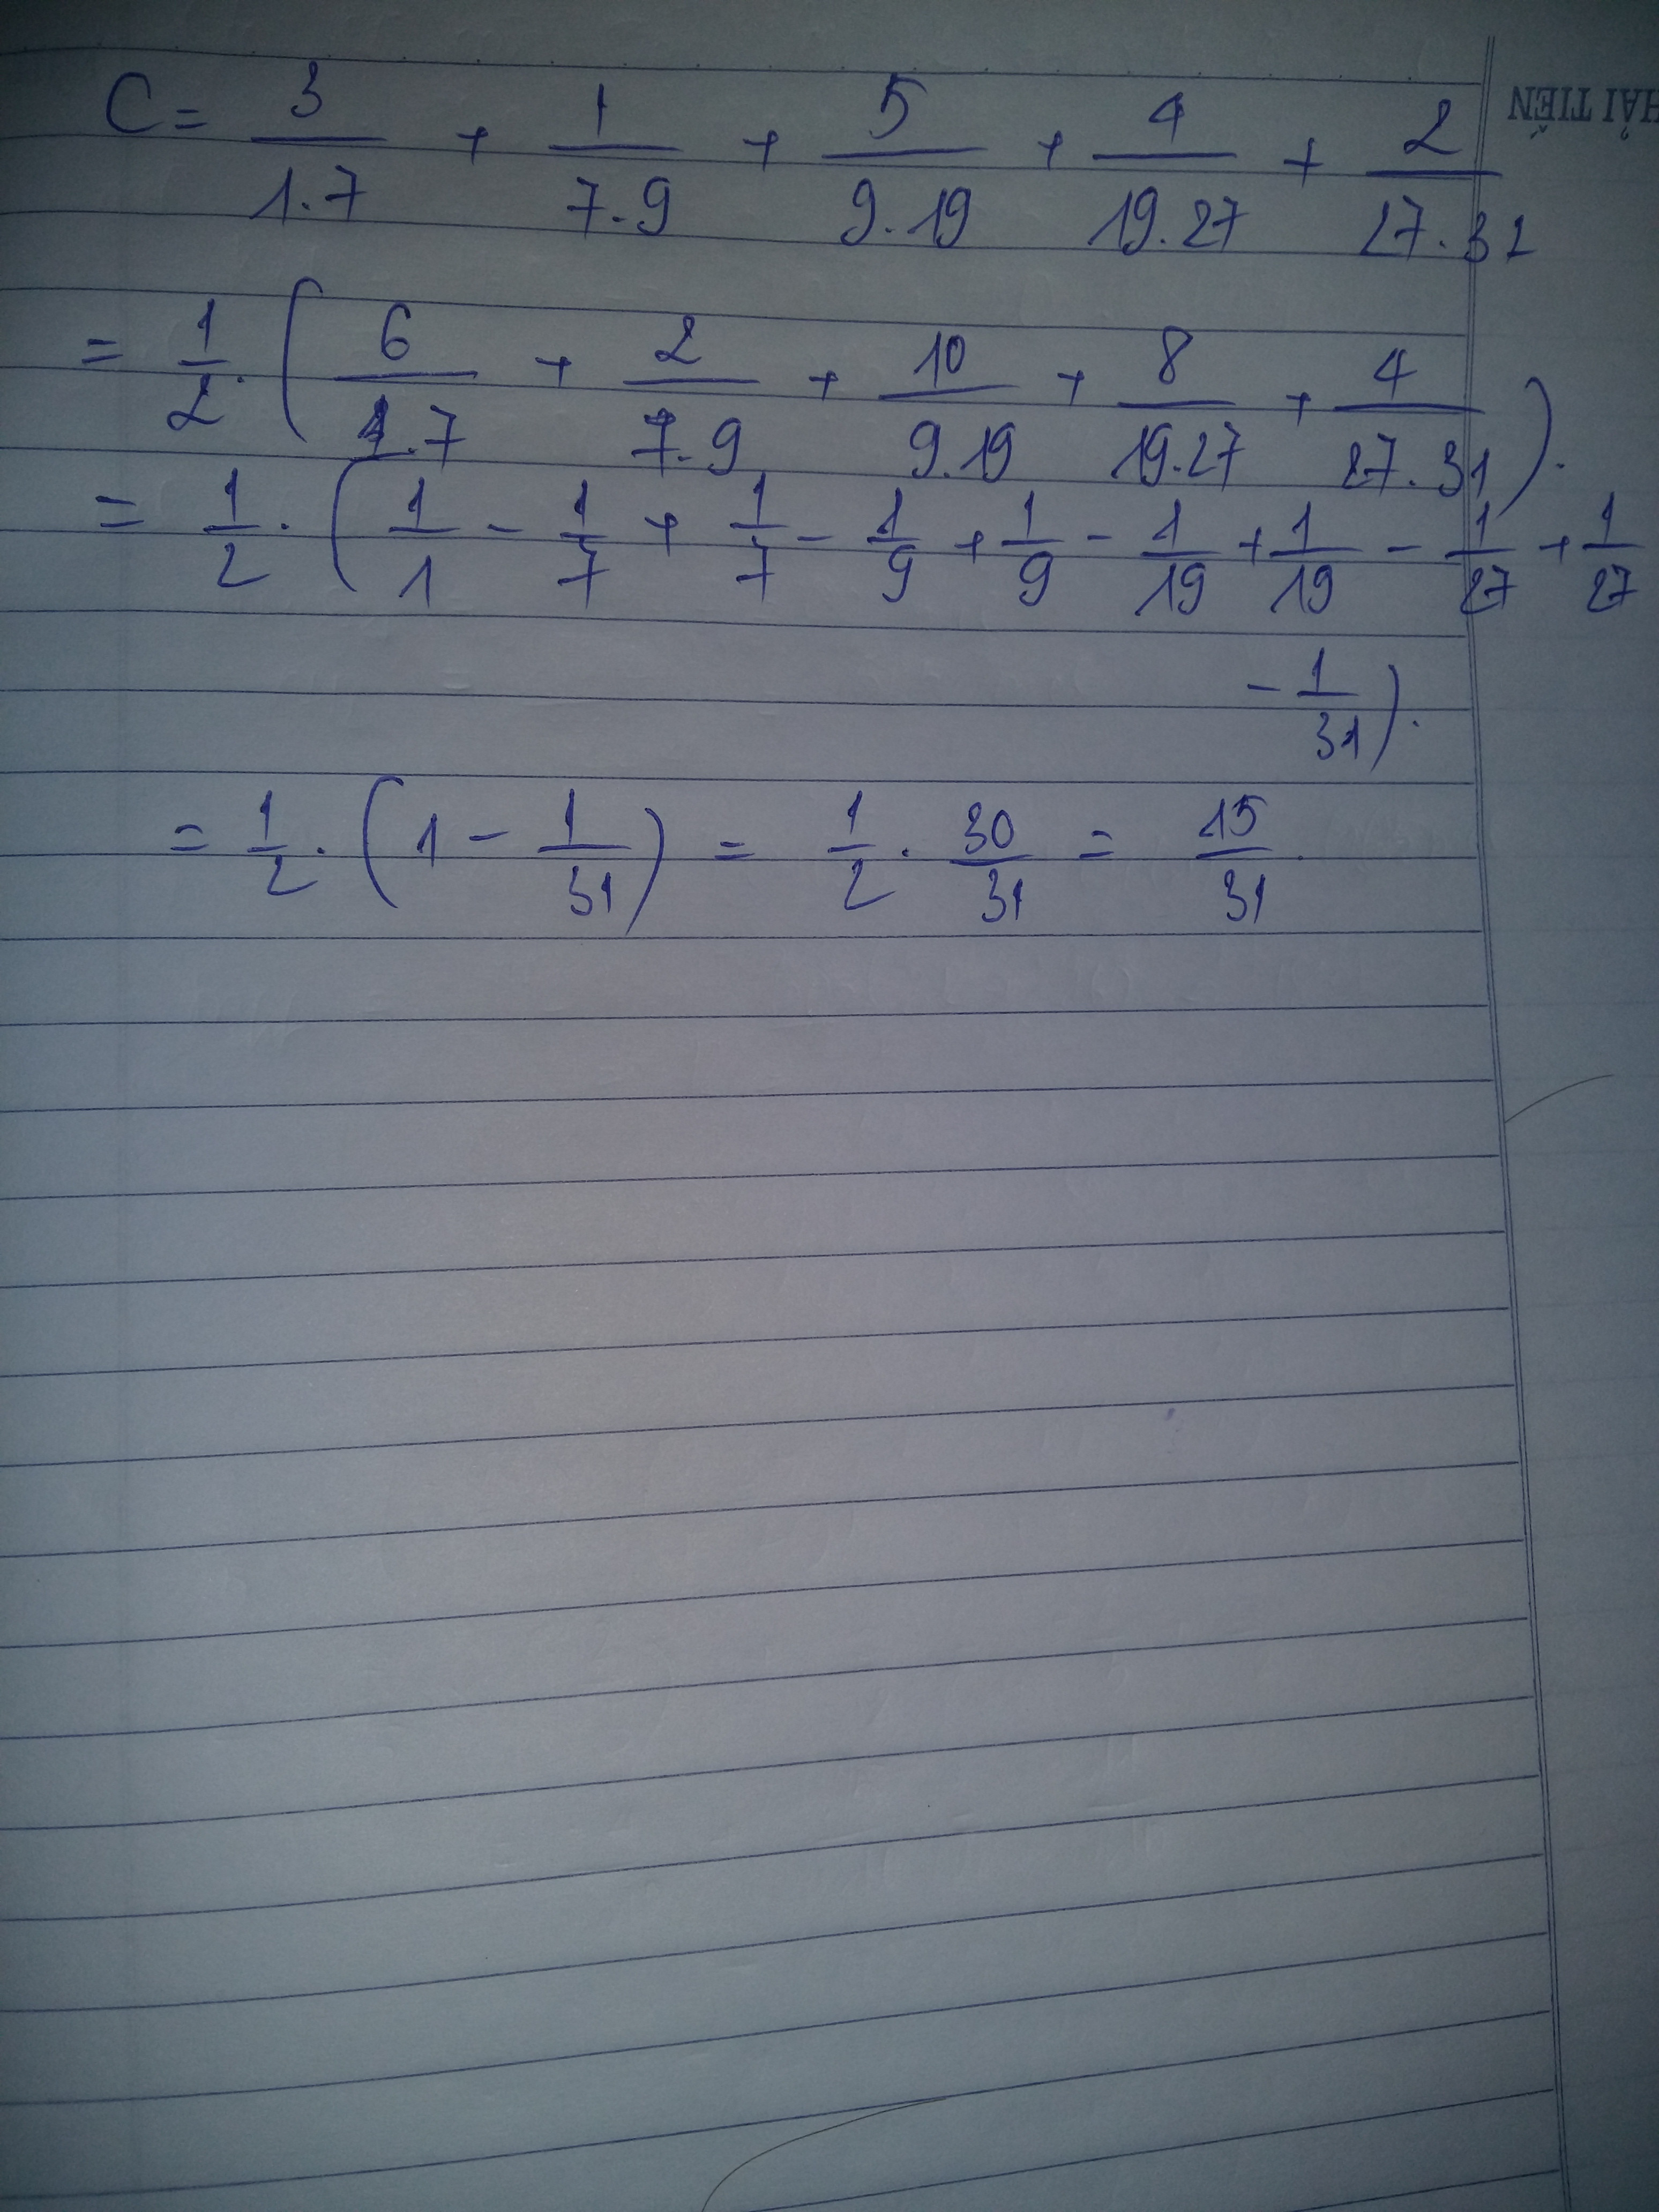 C = 3/1.7 + 1/7.9 + 5/9.19 + 4/19.27 + 2/27.31
= 1/2 . ( 6/1.7 + 2/7.9 + 10/9.19 + 8/19.27 + 4/27.31 ) .
= 1/2 . ( 1/1 - 1/7 + 1/7 - 1/9 + 1/9 - 1/19 + 1/19 - 1/27 + 1/27
- 1/31 ) .
= 1/2 . ( 1 - 1/31 ) = 1/2 . 30/31 = 15/31 .
HẢI TIẾN